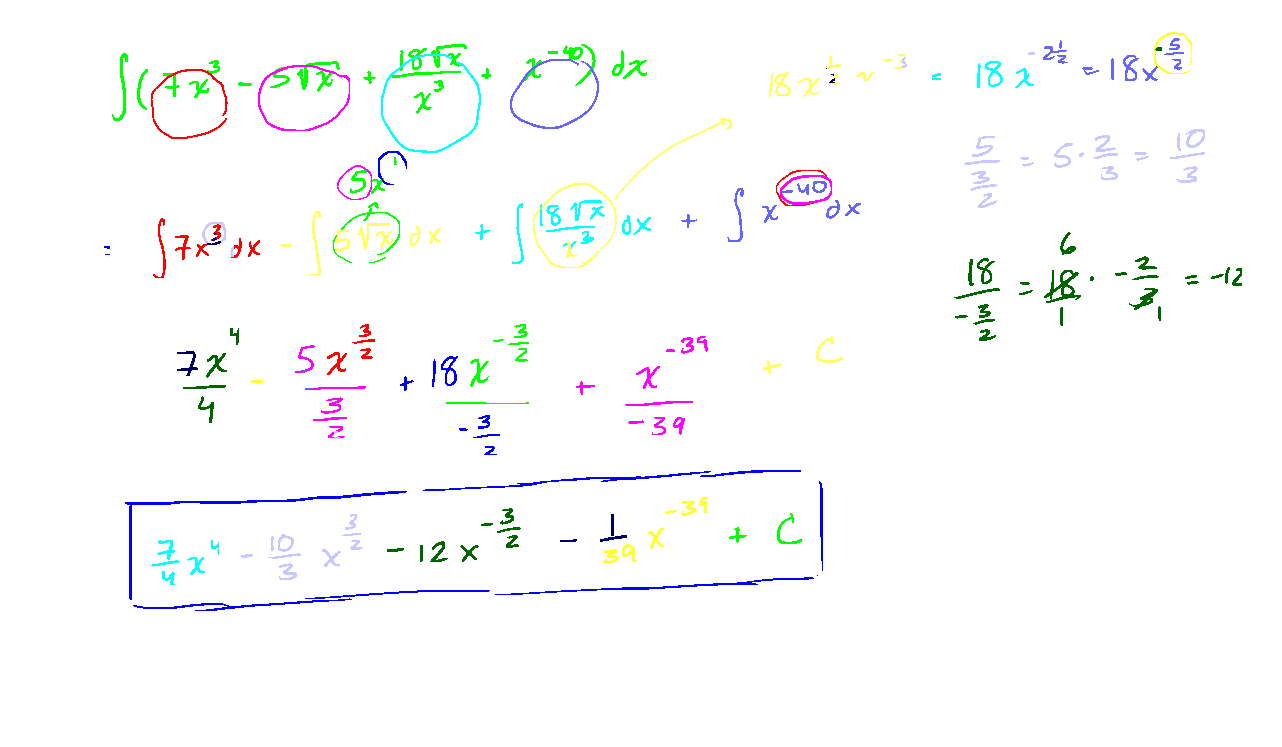 ∫(7x³ - 5√x + 18√x/x³ + x⁻⁴⁰) dx
18x^(1/2) x⁻³ = 18x^(-2 1/2) = 18x^(-5/2)
5/(3/2) = 5 · 2/3 = 10/3
5x¹
= ∫7x³ dx - ∫5√x dx + ∫18√x/x³ dx + ∫x⁻⁴⁰ dx
18/(-3/2) = 18/1 · -2/3 = -12
6
1
7x⁴/4 - 5x^(3/2)/(3/2) + 18x^(-3/2)/(-3/2) + x⁻³⁹/-39 + C
7/4 x⁴ - 10/3 x^(3/2) - 12x^(-3/2) - 1/39 x⁻³⁹ + C